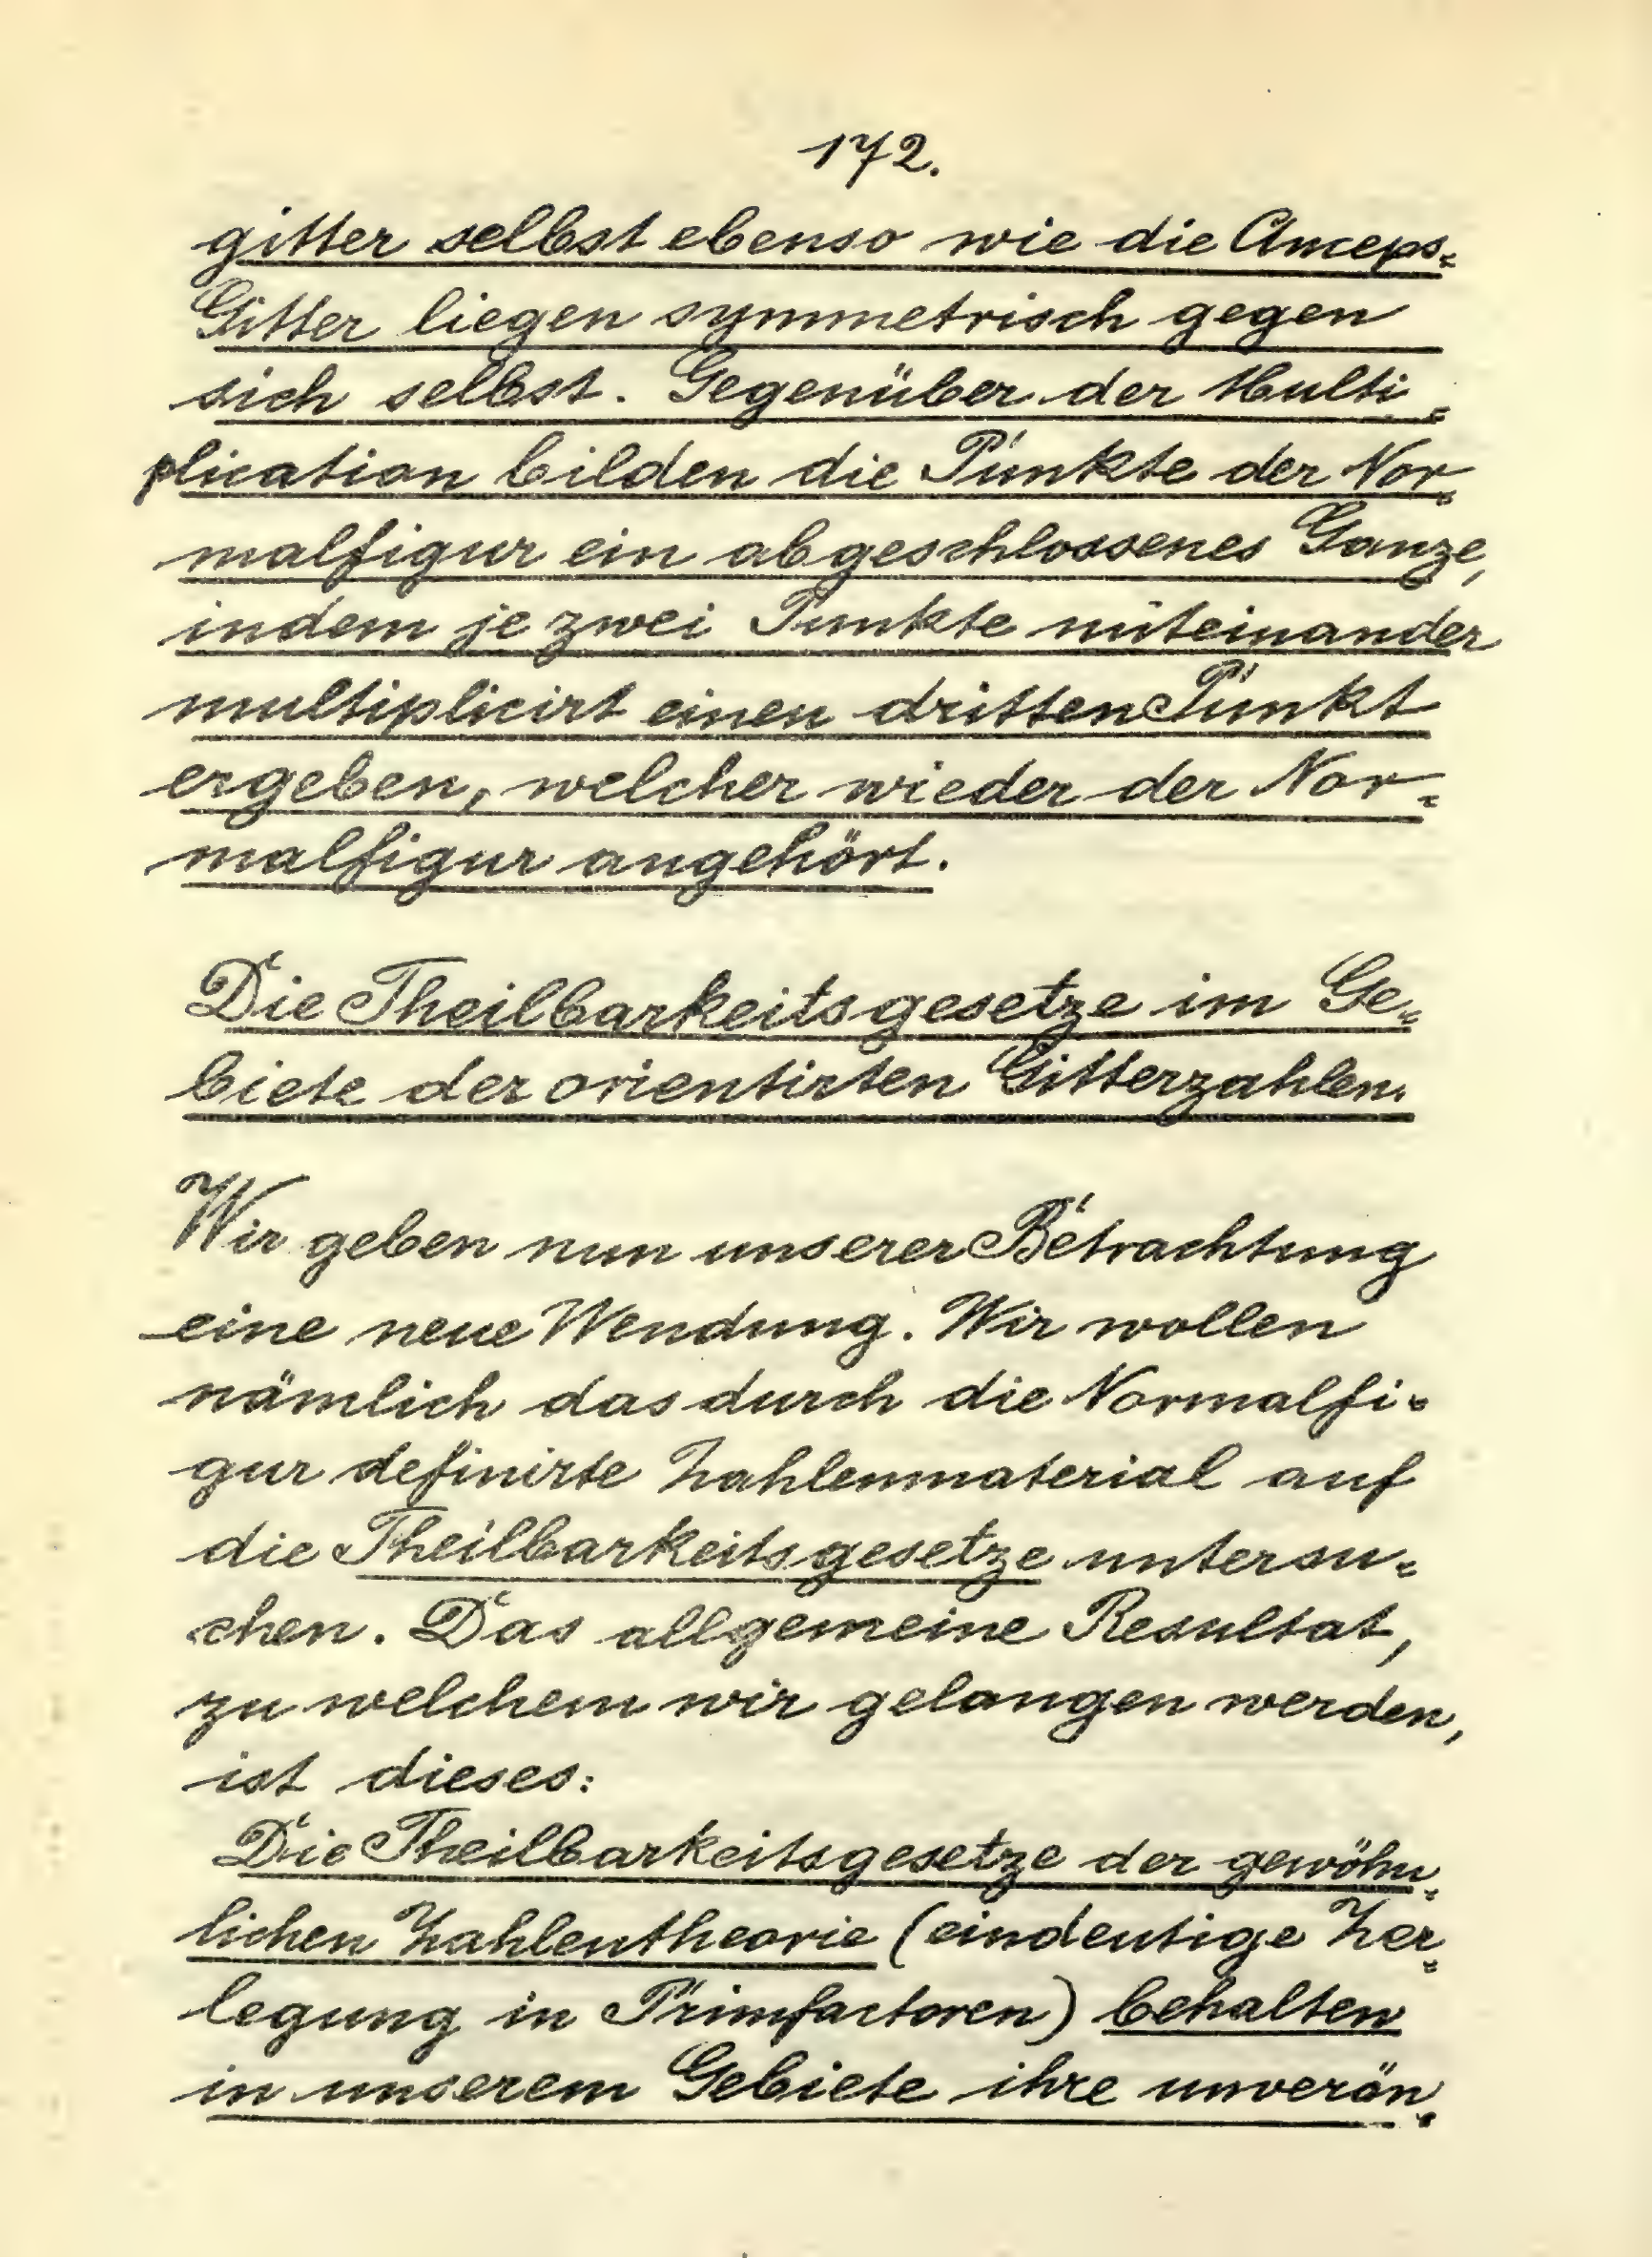 172.
gitter selbst ebenso wie die Anceps-
Gitter liegen symmetrisch gegen
sich selbst. Gegenüber der Multi-
plication bilden die Punkte der Nor-
malfigur ein abgeschlossenes Ganze,
indem je zwei Punkte miteinander
multiplicirt einen dritten Punkt
ergeben, welcher wieder der Nor-
malfigur angehört.
Die Theilbarkeitsgesetze im Ge-
biete der orientirten Gitterzahlen.
Wir geben nun unserer Betrachtung
eine neue Wendung. Wir wollen
nämlich das durch die Normalfi-
gur definirte Zahlenmaterial auf
die Theilbarkeitsgesetze untersu-
chen. Das allgemeine Resultat,
zu welchem wir gelangen werden,
ist dieses:
Die Theilbarkeitsgesetze der gewöhn-
lichen Zahlentheorie (eindeutige Zer-
legung in Primfactoren) behalten
in unserem Gebiete ihre unverän-